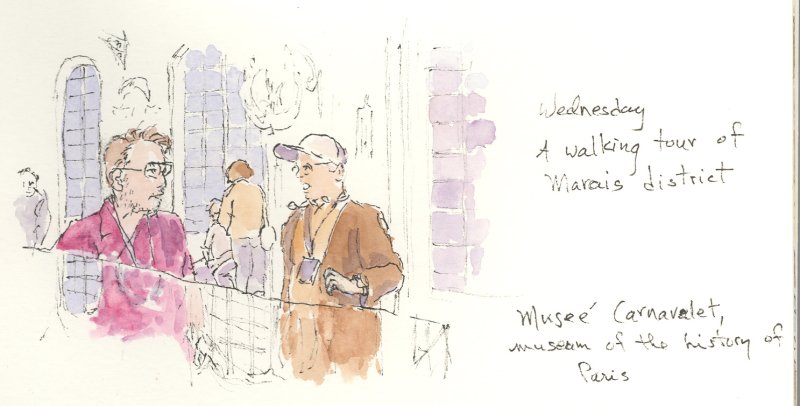 Wednesday
A walking tour of
Marais district
Museé Carnavalet,
museum of the history of
Paris